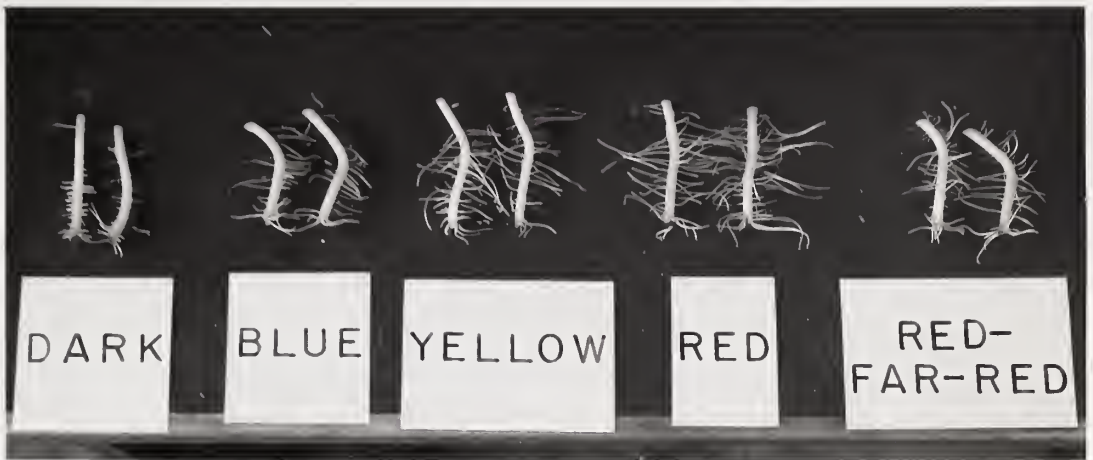 DARK
BLUE
YELLOW
RED
RED-
FAR-RED